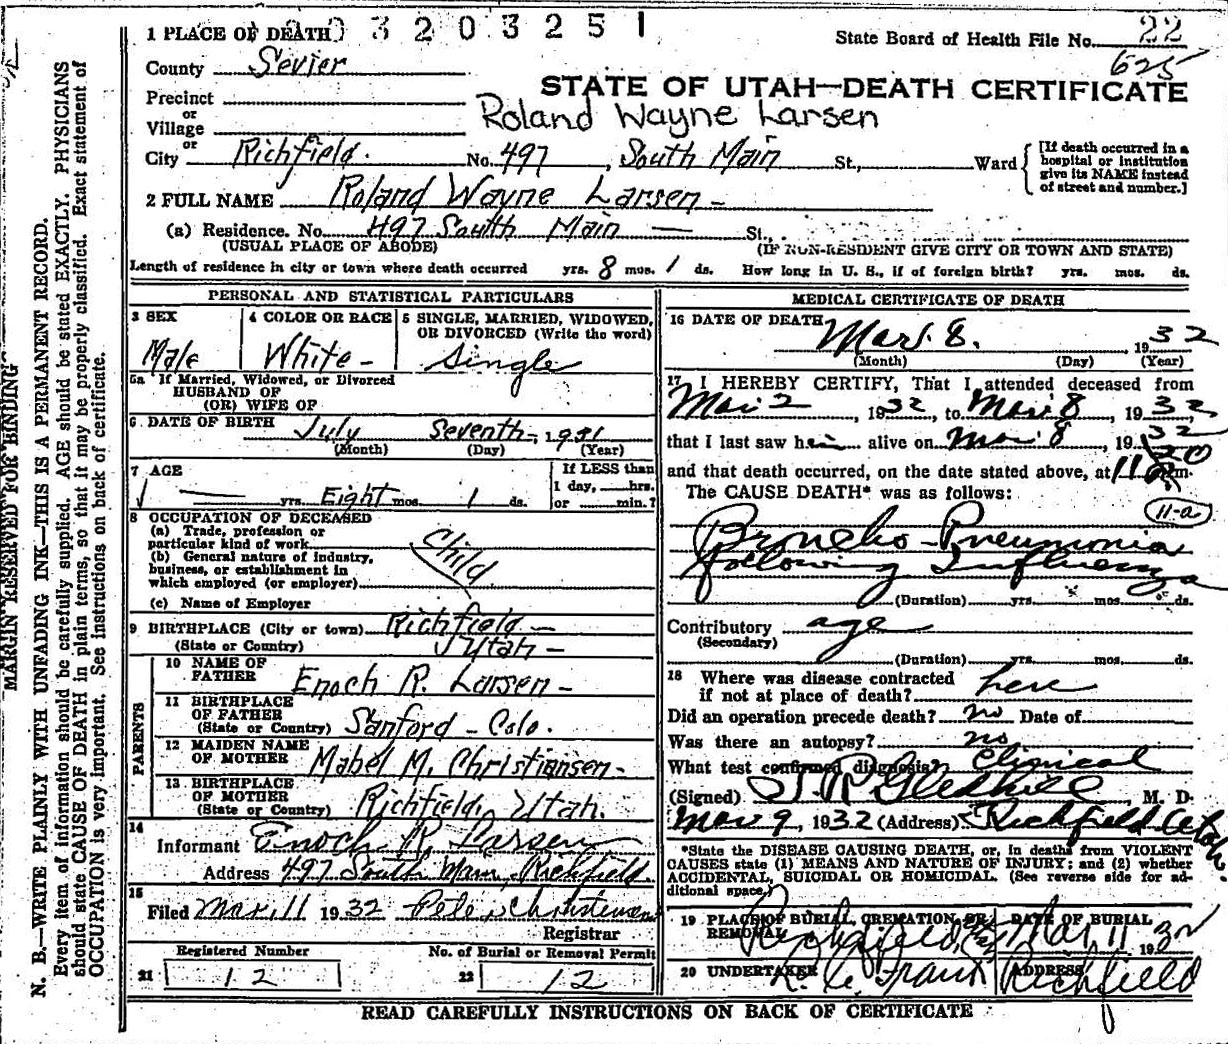 1 PLACE OF DEATH 0320325 1
State Board of Health File No. 22
625
County Sevier
STATE OF UTAH—DEATH CERTIFICATE
Precinct
or
Village
Roland Wayne Larsen
or
City Richfield. No. 497, South Main St., Ward
[If death occurred in a
hospital or institution
give its NAME instead
of street and number.]
2 FULL NAME Roland Wayne Larsen -
(a) Residence. No. 497 South Main — St.,
(USUAL PLACE OF ABODE) (IF NON-RESIDENT GIVE CITY OR TOWN AND STATE)
Length of residence in city or town where death occurred yrs. 8 mos. 1 ds. How long in U. S., if of foreign birth? yrs. mos. ds.
PERSONAL AND STATISTICAL PARTICULARS
3 SEX
Male
4 COLOR OR RACE
White -
5 SINGLE, MARRIED, WIDOWED,
OR DIVORCED (Write the word)
Single
5a If Married, Widowed, or Divorced
HUSBAND OF
(OR) WIFE OF
6 DATE OF BIRTH July Seventh -, 1931
(Month) (Day) (Year)
7 AGE
— yrs. Eight mos. 1 ds.
If LESS than
1 day, hrs.
or min.?
8 OCCUPATION OF DECEASED
(a) Trade, profession or
particular kind of work
(b) General nature of industry,
business, or establishment in
which employed (or employer)
Child
(c) Name of Employer
9 BIRTHPLACE (City or town) Richfield —
(State or Country) Utah -
PARENTS
10 NAME OF
FATHER Enoch R. Larsen -
11 BIRTHPLACE
OF FATHER
(State or Country) Sanford - Colo.
12 MAIDEN NAME
OF MOTHER Mabel M. Christiansen -
13 BIRTHPLACE
OF MOTHER
(State or Country) Richfield, Utah.
14
Informant Enoch R. Larsen
Address 497 South Main, Richfield.
15
Filed Mar. 11 1932
Registrar
Registered Number
21 12
No. of Burial or Removal Permit
22 12
MEDICAL CERTIFICATE OF DEATH
16 DATE OF DEATH Mar. 8. 1932
(Month) (Day) (Year)
17 I HEREBY CERTIFY, That I attended deceased from
Mar 2, 1932, to Mar 8, 1932,
that I last saw him alive on Mar 8, 1932
and that death occurred, on the date stated above, at 11 20 m.
The CAUSE DEATH* was as follows:
11-a
Broncho-Pneumonia
following Influenza
(Duration) yrs. mos. ds.
Contributory age
(Secondary)
(Duration) yrs. mos. ds.
18 Where was disease contracted
if not at place of death? here
Did an operation precede death? no Date of
Was there an autopsy? no
What test confirmed diagnosis? Clinical
(Signed) J. R. Gledhill M. D.
Mar 9, 1932 (Address) Richfield Utah.
*State the DISEASE CAUSING DEATH, or, in deaths from VIOLENT
CAUSES state (1) MEANS AND NATURE OF INJURY; and (2) whether
ACCIDENTAL, SUICIDAL OR HOMICIDAL. (See reverse side for ad-
ditional space.)
19 PLACE OF BURIAL, CREMATION, OR
REMOVAL Richfield
DATE OF BURIAL
Mar 11 1932
20 UNDERTAKER
ADDRESS
Richfield
READ CAREFULLY INSTRUCTIONS ON BACK OF CERTIFICATE
MARGIN RESERVED FOR BINDING
N. B.—WRITE PLAINLY WITH UNFADING INK—THIS IS A PERMANENT RECORD.
Every item of information should be carefully supplied. AGE should be stated EXACTLY. PHYSICIANS
should state CAUSE OF DEATH in plain terms, so that it may be properly classified. Exact statement of
OCCUPATION is very important. See instructions on back of certificate.